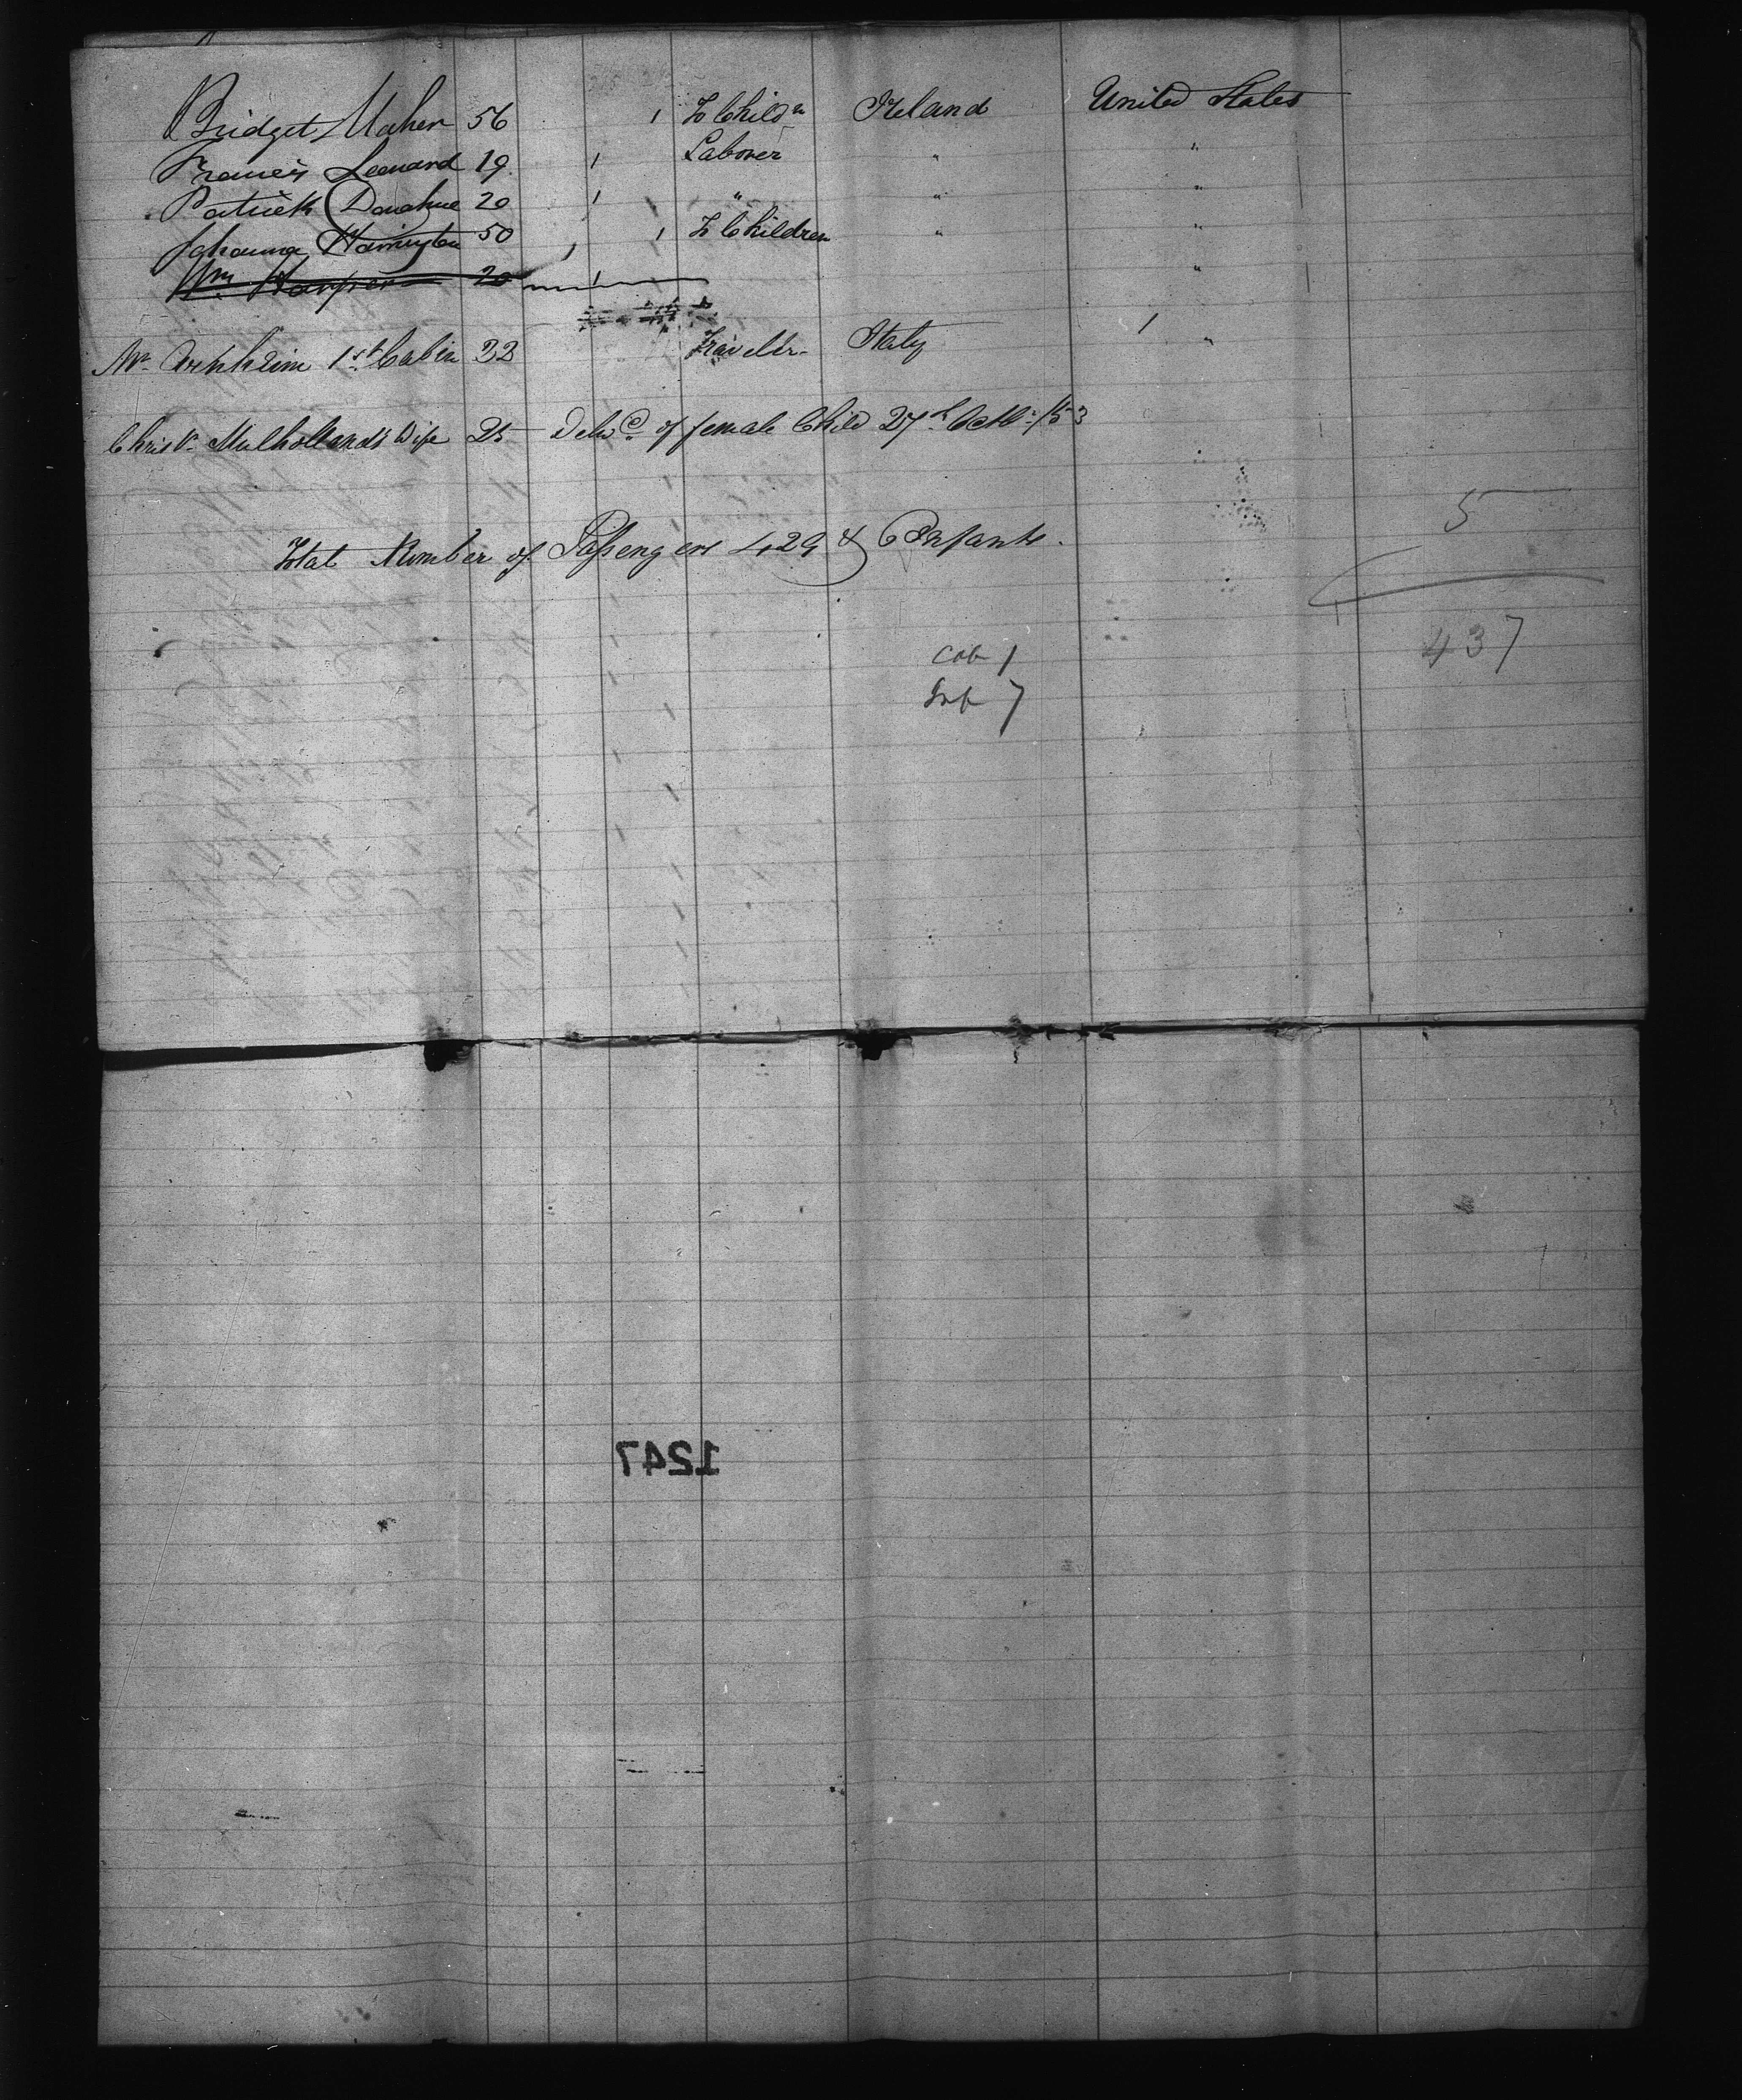 Bridget Maher 56 1 To Child n Ireland United States
Francis Leonard 19 1 Laborer " "
Patrick Donahue 20 1 " " "
Johanna Harrington 50 1 To Children " "
Wm. Harper 20 1 "
Mr. Arnheim 1st Cabin 22 Traveller Italy 1 "
Christr. Mulholland's Wife 25 Delivd. of female Child 27th Octr. /53
5
Total Number of Passengers 429 & 6 Infants.
437
Cab 1
Inf 7
1247